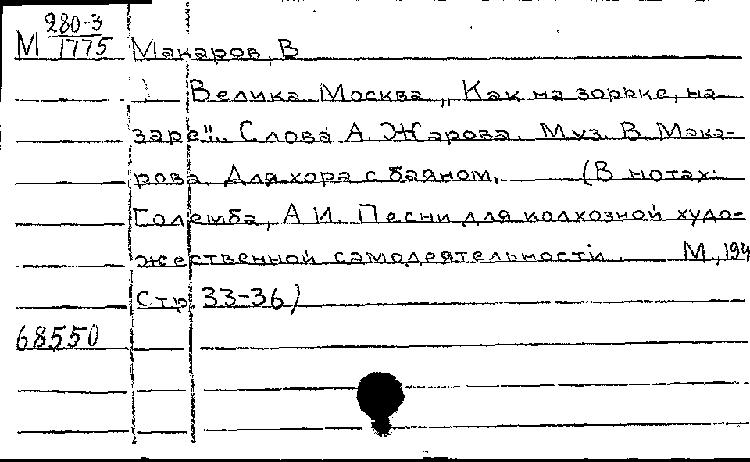 280-3
М 1775 Макаров, В
Велика Москва „Как на зорьке, на
заре". Слова А. Жарова. Муз. В. Мака-
рова. Для хора с баяном. (В нотах:
Големба, А И. Песни для колхозной худо-
жественной самодеятельности. М., 194
Стр. 33-36)
68550